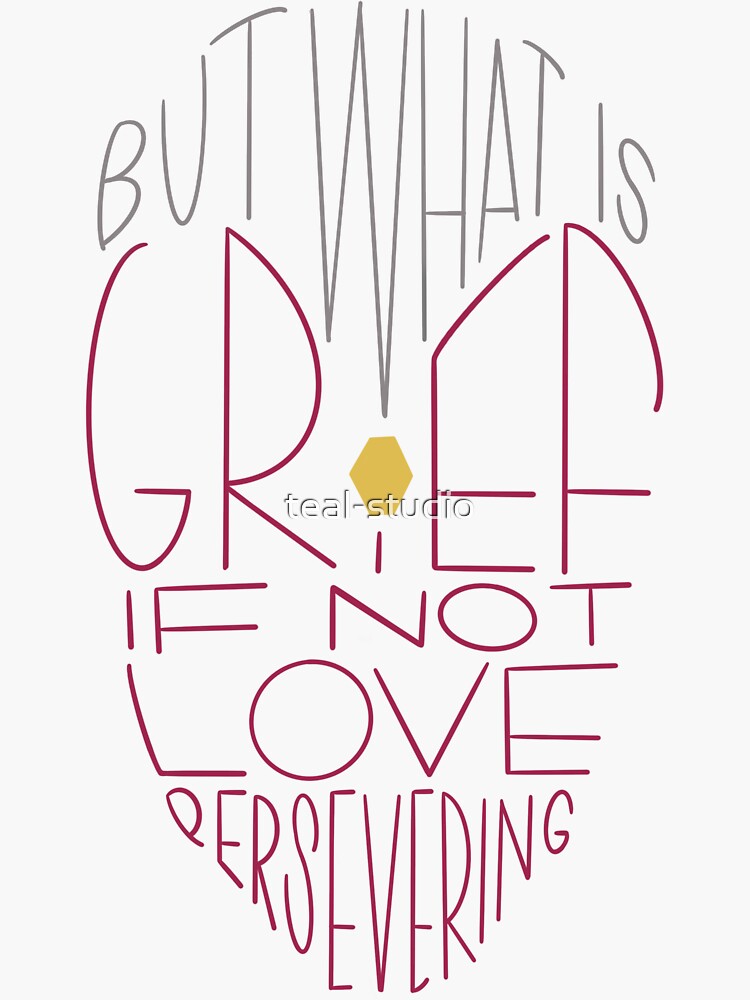 BUT WHAT IS
GRIEF
teal-studio
IF NOT
LOVE
PERSEVERING